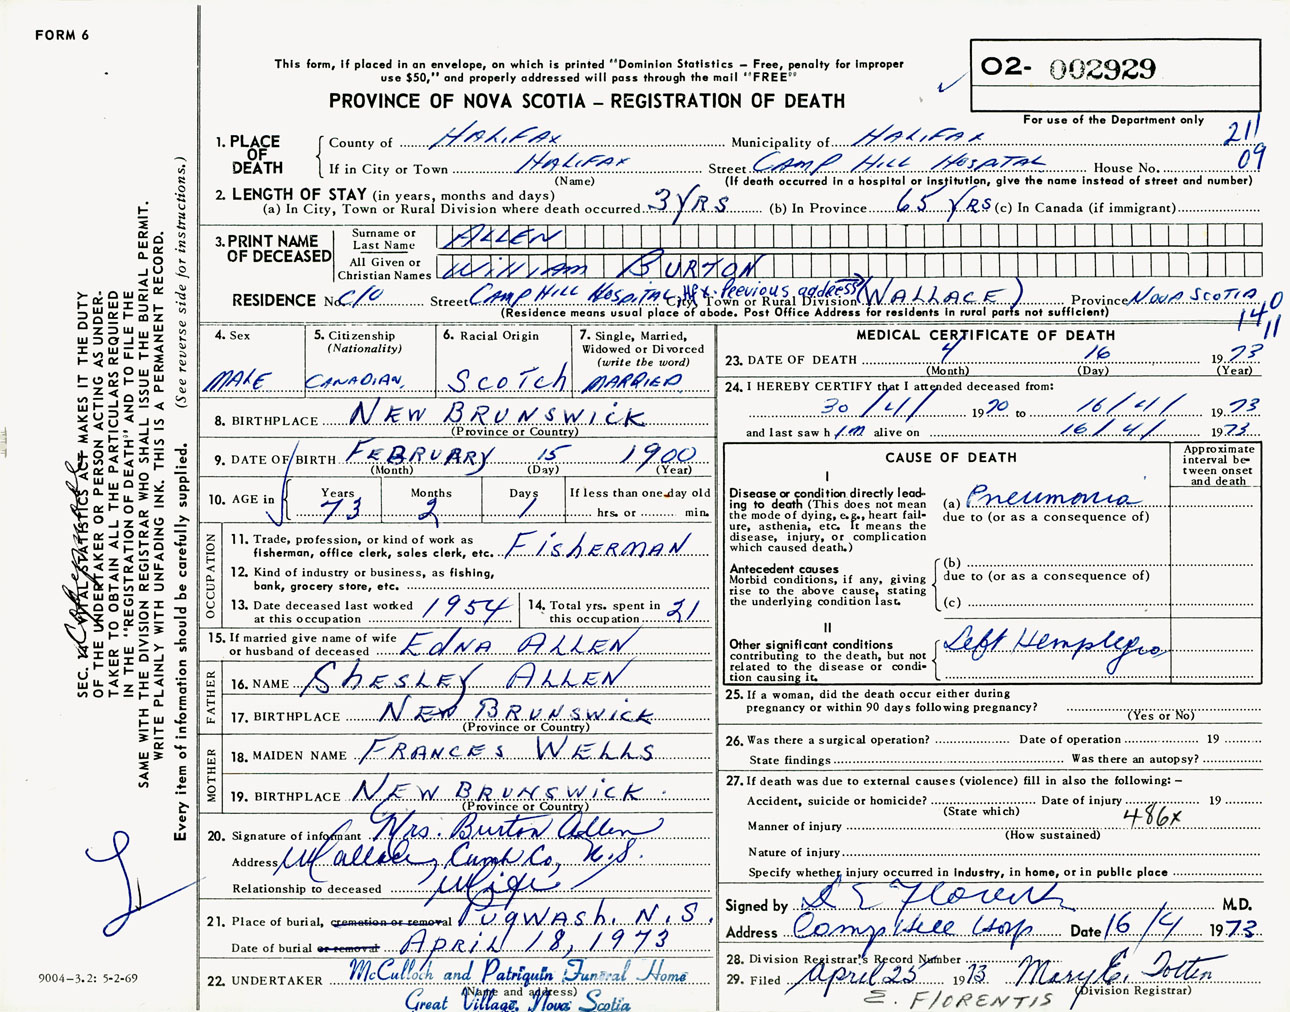 FORM 6
This form, if placed in an envelope, on which is printed "Dominion Statistics – Free, penalty for improper
use $50," and properly addressed will pass through the mail "FREE"
PROVINCE OF NOVA SCOTIA – REGISTRATION OF DEATH
02- 002929
For use of the Department only
211
09
1. PLACE OF DEATH
County of HALIFAX Municipality of HALIFAX
If in City or Town HALIFAX Street CAMP HILL HOSPITAL House No.
(Name) (If death occurred in a hospital or institution, give the name instead of street and number)
2. LENGTH OF STAY (in years, months and days)
(a) In City, Town or Rural Division where death occurred 3 YRS (b) In Province 65 YRS (c) In Canada (if immigrant)
3. PRINT NAME OF DECEASED
Surname or Last Name ALLEN
All Given or Christian Names WILLIAM BURTON
RESIDENCE No. C/O Street CAMP HILL HOSPITAL Hfx. Previous address City, Town or Rural Division (WALLACE) Province NOVA SCOTIA
(Residence means usual place of abode. Post Office Address for residents in rural parts not sufficient)
14 11
4. Sex
MALE
5. Citizenship
(Nationality)
CANADIAN
6. Racial Origin
Scotch
7. Single, Married,
Widowed or Divorced
(write the word)
MARRIED
8. BIRTHPLACE NEW BRUNSWICK
(Province or Country)
9. DATE OF BIRTH FEBRUARY 15 1900
(Month) (Day) (Year)
10. AGE in Years 73 Months 2 Days 1 If less than one day old
hrs. or min.
OCCUPATION
11. Trade, profession, or kind of work as
fisherman, office clerk, sales clerk, etc. FISHERMAN
12. Kind of industry or business, as fishing,
bank, grocery store, etc.
13. Date deceased last worked
at this occupation 1954
14. Total yrs. spent in
this occupation 21
15. If married give name of wife
or husband of deceased EDNA ALLEN
FATHER
16. NAME SHESLEY ALLEN
17. BIRTHPLACE NEW BRUNSWICK
(Province or Country)
MOTHER
18. MAIDEN NAME FRANCES WELLS
19. BIRTHPLACE NEW BRUNSWICK
(Province or Country)
20. Signature of informant Mrs. Burton Allen
Address Wallace, Cumb Co, N.S.
Relationship to deceased Wife
21. Place of burial, cremation or removal PUGWASH. N.S.
Date of burial or removal APRIL 18, 1973
22. UNDERTAKER McCulloch and Patriquin Funeral Home
(Name and address)
Great Village, Nova Scotia
MEDICAL CERTIFICATE OF DEATH
23. DATE OF DEATH 4 16 1973
(Month) (Day) (Year)
24. I HEREBY CERTIFY that I attended deceased from:
30/4/ 1970 to 16/4/ 1973
and last saw him alive on 16/4/ 1973
CAUSE OF DEATH
Approximate
interval be-
tween onset
and death
I
Disease or condition directly lead-
ing to death (This does not mean
the mode of dying, e.g., heart fail-
ure, asthenia, etc. It means the
disease, injury, or complication
which caused death.)
(a) Pneumonia
due to (or as a consequence of)
Antecedent causes
Morbid conditions, if any, giving
rise to the above cause, stating
the underlying condition last.
(b)
due to (or as a consequence of)
(c)
II
Other significant conditions
contributing to the death, but not
related to the disease or condi-
tion causing it.
Left Hemplegia
25. If a woman, did the death occur either during
pregnancy or within 90 days following pregnancy?
(Yes or No)
26. Was there a surgical operation? Date of operation 19
State findings Was there an autopsy?
27. If death was due to external causes (violence) fill in also the following: –
Accident, suicide or homicide? Date of injury 19
(State which)
Manner of injury 486x
(How sustained)
Nature of injury
Specify whether injury occurred in Industry, in home, or in public place
Signed by E Florentis M.D.
Address Camp Hill Hosp Date 16/4 1973
28. Division Registrar's Record Number
29. Filed April 25 1973 Mary E. Totten
(Division Registrar)
E. FLORENTIS
SEC. VITAL STATISTICS ACT MAKES IT THE DUTY
OF THE UNDERTAKER OR PERSON ACTING AS UNDER-
TAKER TO OBTAIN ALL THE PARTICULARS REQUIRED
IN THE "REGISTRATION OF DEATH" AND TO FILE THE
SAME WITH THE DIVISION REGISTRAR WHO SHALL ISSUE THE BURIAL PERMIT.
WRITE PLAINLY WITH UNFADING INK. THIS IS A PERMANENT RECORD.
Every item of information should be carefully supplied. (See reverse side for instructions.)
9004–3.2: 5-2-69